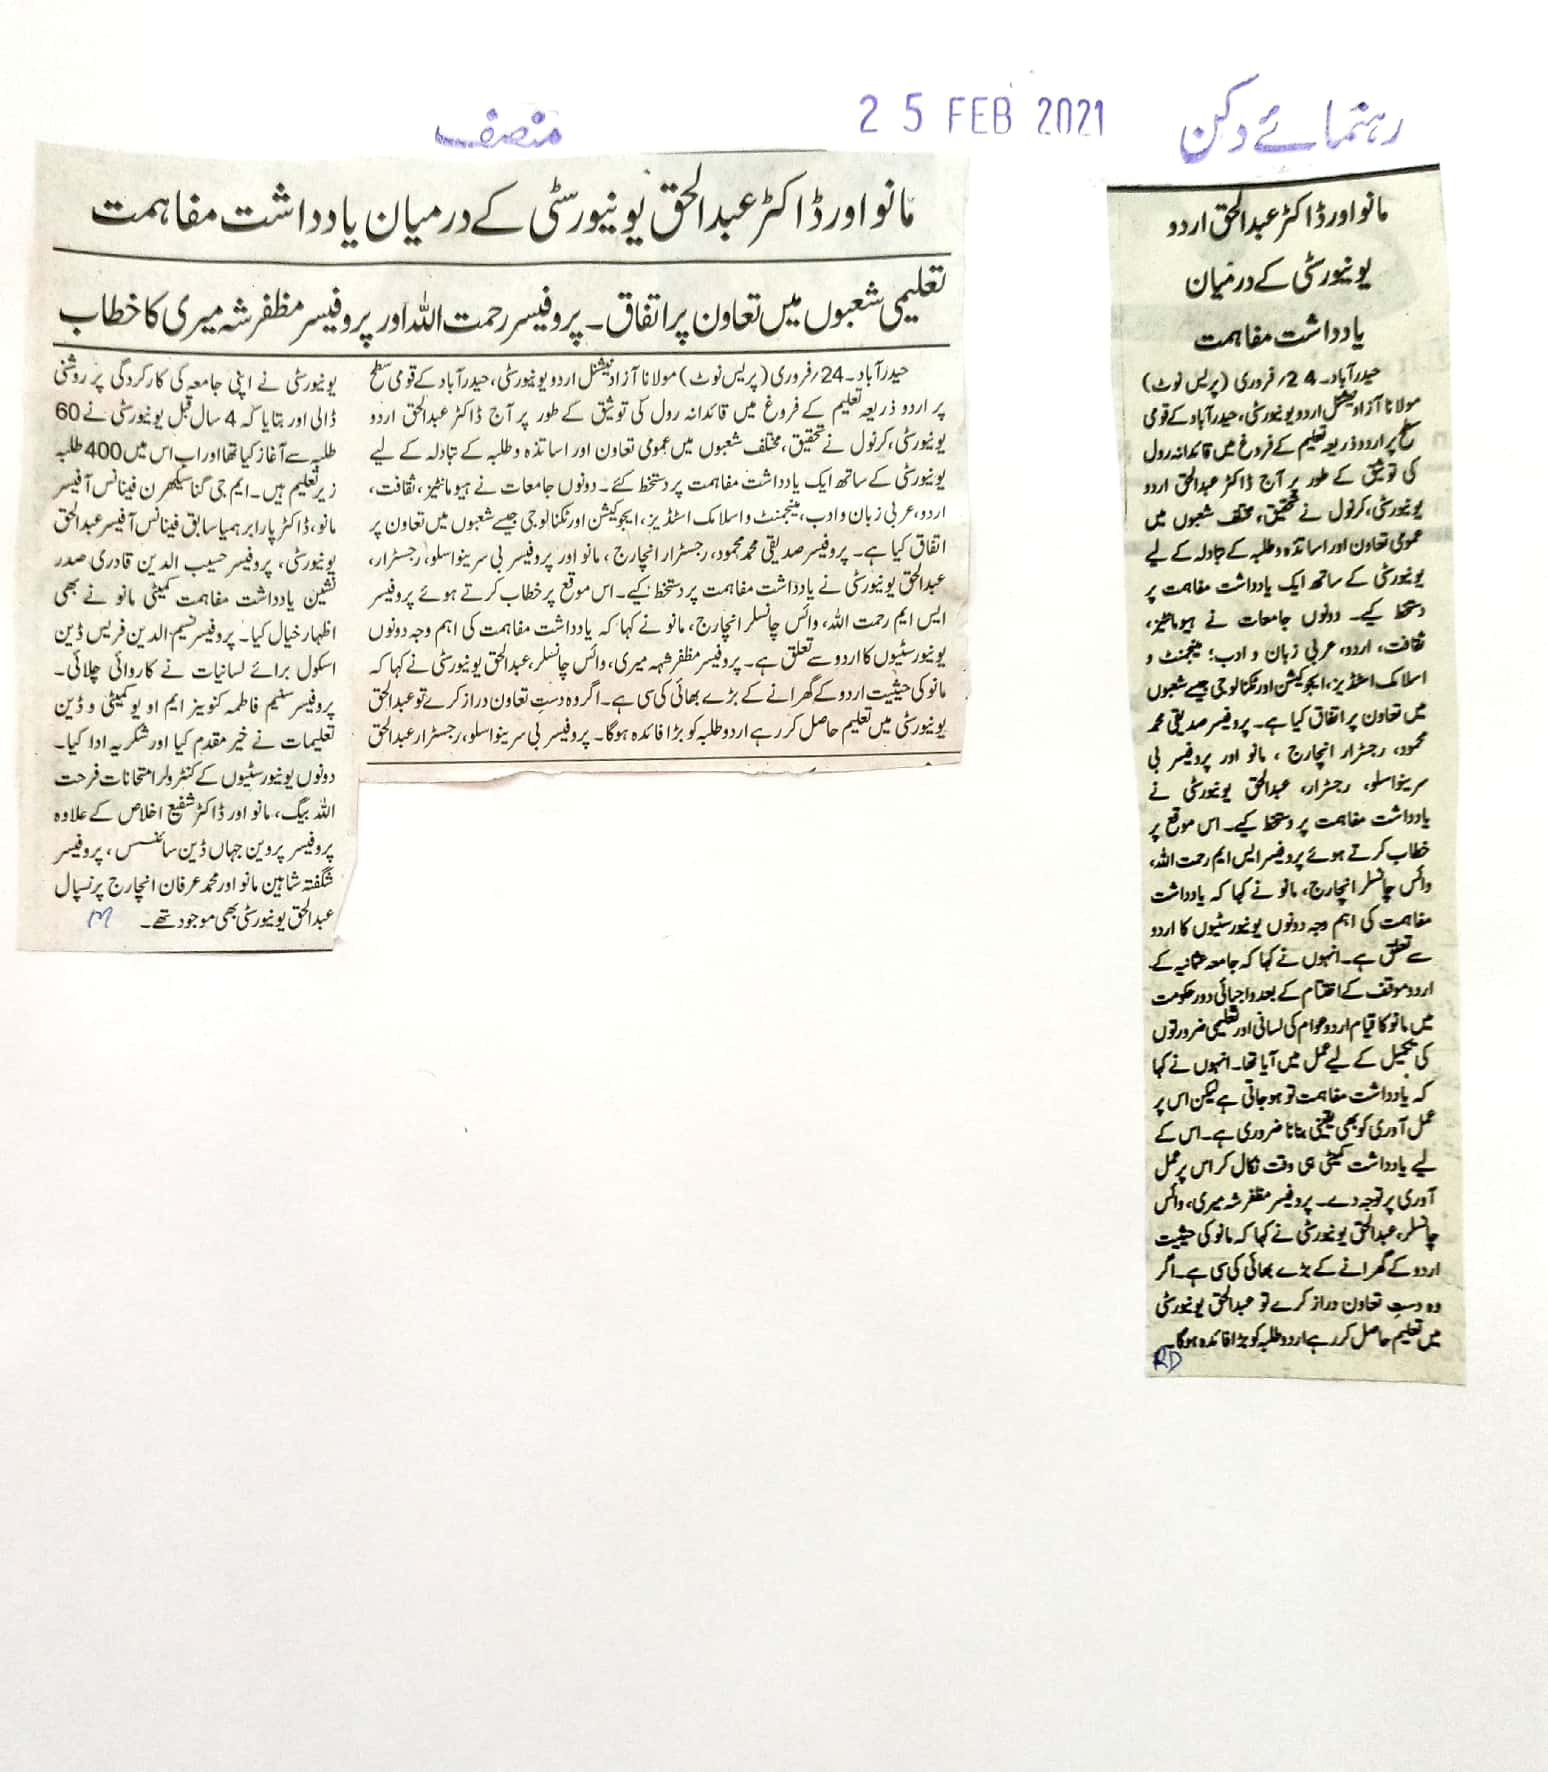 منصف
25 FEB 2021
رہنمائے دکن
مانو اور ڈاکٹر عبدالحق یونیورسٹی کے درمیان یادداشت مفاہمت
تعلیمی شعبوں میں تعاون پر اتفاق۔ پروفیسر رحمت اللہ اور پروفیسر مظفر شہ میری کا خطاب
حیدرآباد۔24؍فروری (پریس نوٹ) مولانا آزاد نیشنل اردو یونیورسٹی، حیدرآباد کے قومی سطح
پر اردو ذریعہ تعلیم کے فروغ میں قائدانہ رول کی توثیق کے طور پر آج ڈاکٹر عبدالحق اردو
یونیورسٹی، کرنول نے تحقیق، مختلف شعبوں میں عمومی تعاون اور اساتذہ و طلبہ کے تبادلہ کے لیے
یونیورسٹی کے ساتھ ایک یادداشت مفاہمت پر دستخط کئے۔ دونوں جامعات نے ہیومانٹیز، ثقافت،
اردو، عربی زبان و ادب، مینجمنٹ و اسلامک اسٹڈیز، ایجوکیشن اور ٹکنالوجی جیسے شعبوں میں تعاون پر
اتفاق کیا ہے۔ پروفیسر صدیقی محمد محمود، رجسٹرار انچارج، مانو اور پروفیسر بی سرینواسلو، رجسٹرار،
عبدالحق یونیورسٹی نے یادداشت مفاہمت پر دستخط کیے۔ اس موقع پر خطاب کرتے ہوئے پروفیسر
ایس ایم رحمت اللہ، وائس چانسلر انچارج، مانو نے کہا کہ یادداشت مفاہمت کی اہم وجہ دونوں
یونیورسٹیوں کا اردو سے تعلق ہے۔ پروفیسر مظفر شہہ میری، وائس چانسلر، عبدالحق یونیورسٹی نے کہا کہ
مانو کی حیثیت اردو کے گھرانے کے بڑے بھائی کی سی ہے۔ اگر وہ دستِ تعاون دراز کرے تو عبدالحق
یونیورسٹی میں تعلیم حاصل کر رہے اردو طلبہ کو بڑا فائدہ ہوگا۔ پروفیسر بی سرینواسلو، رجسٹرار عبدالحق
یونیورسٹی نے اپنی جامعہ کی کارکردگی پر روشنی
ڈالی اور بتایا کہ 4 سال قبل یونیورسٹی نے 60
طلبہ سے آغاز کیا تھا اور اب اس میں 400 طلبہ
زیر تعلیم ہیں۔ ایم جی گناسکھرن فینانس آفیسر
مانو، ڈاکٹر پارابرہمیا سابق فینانس آفیسر عبدالحق
یونیورسٹی، پروفیسر حسیب الدین قادری صدر
نشین یادداشت مفاہمت کمیٹی مانو نے بھی
اظہار خیال کیا۔ پروفیسر نسیم الدین فریس ڈین
اسکول برائے لسانیات نے کاروائی چلائی۔
پروفیسر سنیم فاطمہ کنوینر ایم او یو کمیٹی و ڈین
تعلیمات نے خیر مقدم کیا اور شکریہ ادا کیا۔
دونوں یونیورسٹیوں کے کنٹرولر امتحانات فرحت
اللہ بیگ، مانو اور ڈاکٹر شفیع اخلاص کے علاوہ
پروفیسر پروین جہاں ڈین سائنسس، پروفیسر
شگفتہ شاہین مانو اور محمد عرفان انچارج پرنسپال
عبدالحق یونیورسٹی بھی موجود تھے۔ M
مانو اور ڈاکٹر عبدالحق اردو
یونیورسٹی کے درمیان
یادداشت مفاہمت
حیدرآباد۔ 24؍فروری (پریس نوٹ)
مولانا آزاد نیشنل اردو یونیورسٹی، حیدرآباد کے قومی
سطح پر اردو ذریعہ تعلیم کے فروغ میں قائدانہ رول
کی توثیق کے طور پر آج ڈاکٹر عبدالحق اردو
یونیورسٹی، کرنول نے تحقیق، مختلف شعبوں میں
عمومی تعاون اور اساتذہ و طلبہ کے تبادلہ کے لیے
یونیورسٹی کے ساتھ ایک یادداشت مفاہمت پر
دستخط کیے۔ دونوں جامعات نے ہیومانٹیز،
ثقافت، اردو، عربی زبان و ادب؛ مینجمنٹ و
اسلامک اسٹڈیز، ایجوکیشن اور ٹکنالوجی جیسے شعبوں
میں تعاون پر اتفاق کیا ہے۔ پروفیسر صدیقی محمد
محمود، رجسٹرار انچارج، مانو اور پروفیسر بی
سرینواسلو، رجسٹرار، عبدالحق یونیورسٹی نے
یادداشت مفاہمت پر دستخط کیے۔ اس موقع پر
خطاب کرتے ہوئے پروفیسر ایس ایم رحمت اللہ،
وائس چانسلر انچارج، مانو نے کہا کہ یادداشت
مفاہمت کی اہم وجہ دونوں یونیورسٹیوں کا اردو
سے تعلق ہے۔ انہوں نے کہا کہ جامعہ عثمانیہ کے
اردو موقف کے اختتام کے بعد واجپائی دور حکومت
میں مانو کا قیام اردو عوام کی لسانی اور تعلیمی ضرورتوں
کی تکمیل کے لیے عمل میں آیا تھا۔ انہوں نے کہا
کہ یادداشت مفاہمت تو ہو جاتی ہے لیکن اس پر
عمل آوری کو بھی یقینی بنانا ضروری ہے۔ اس کے
لیے یادداشت کمیٹی ہی وقت نکال کر اس پر عمل
آوری پر توجہ دے۔ پروفیسر مظفر شہ میری، وائس
چانسلر، عبدالحق یونیورسٹی نے کہا کہ مانو کی حیثیت
اردو کے گھرانے کے بڑے بھائی کی سی ہے۔ اگر
وہ دستِ تعاون دراز کرے تو عبدالحق یونیورسٹی
میں تعلیم حاصل کر رہے اردو طلبہ کو بڑا فائدہ ہوگا۔
RD